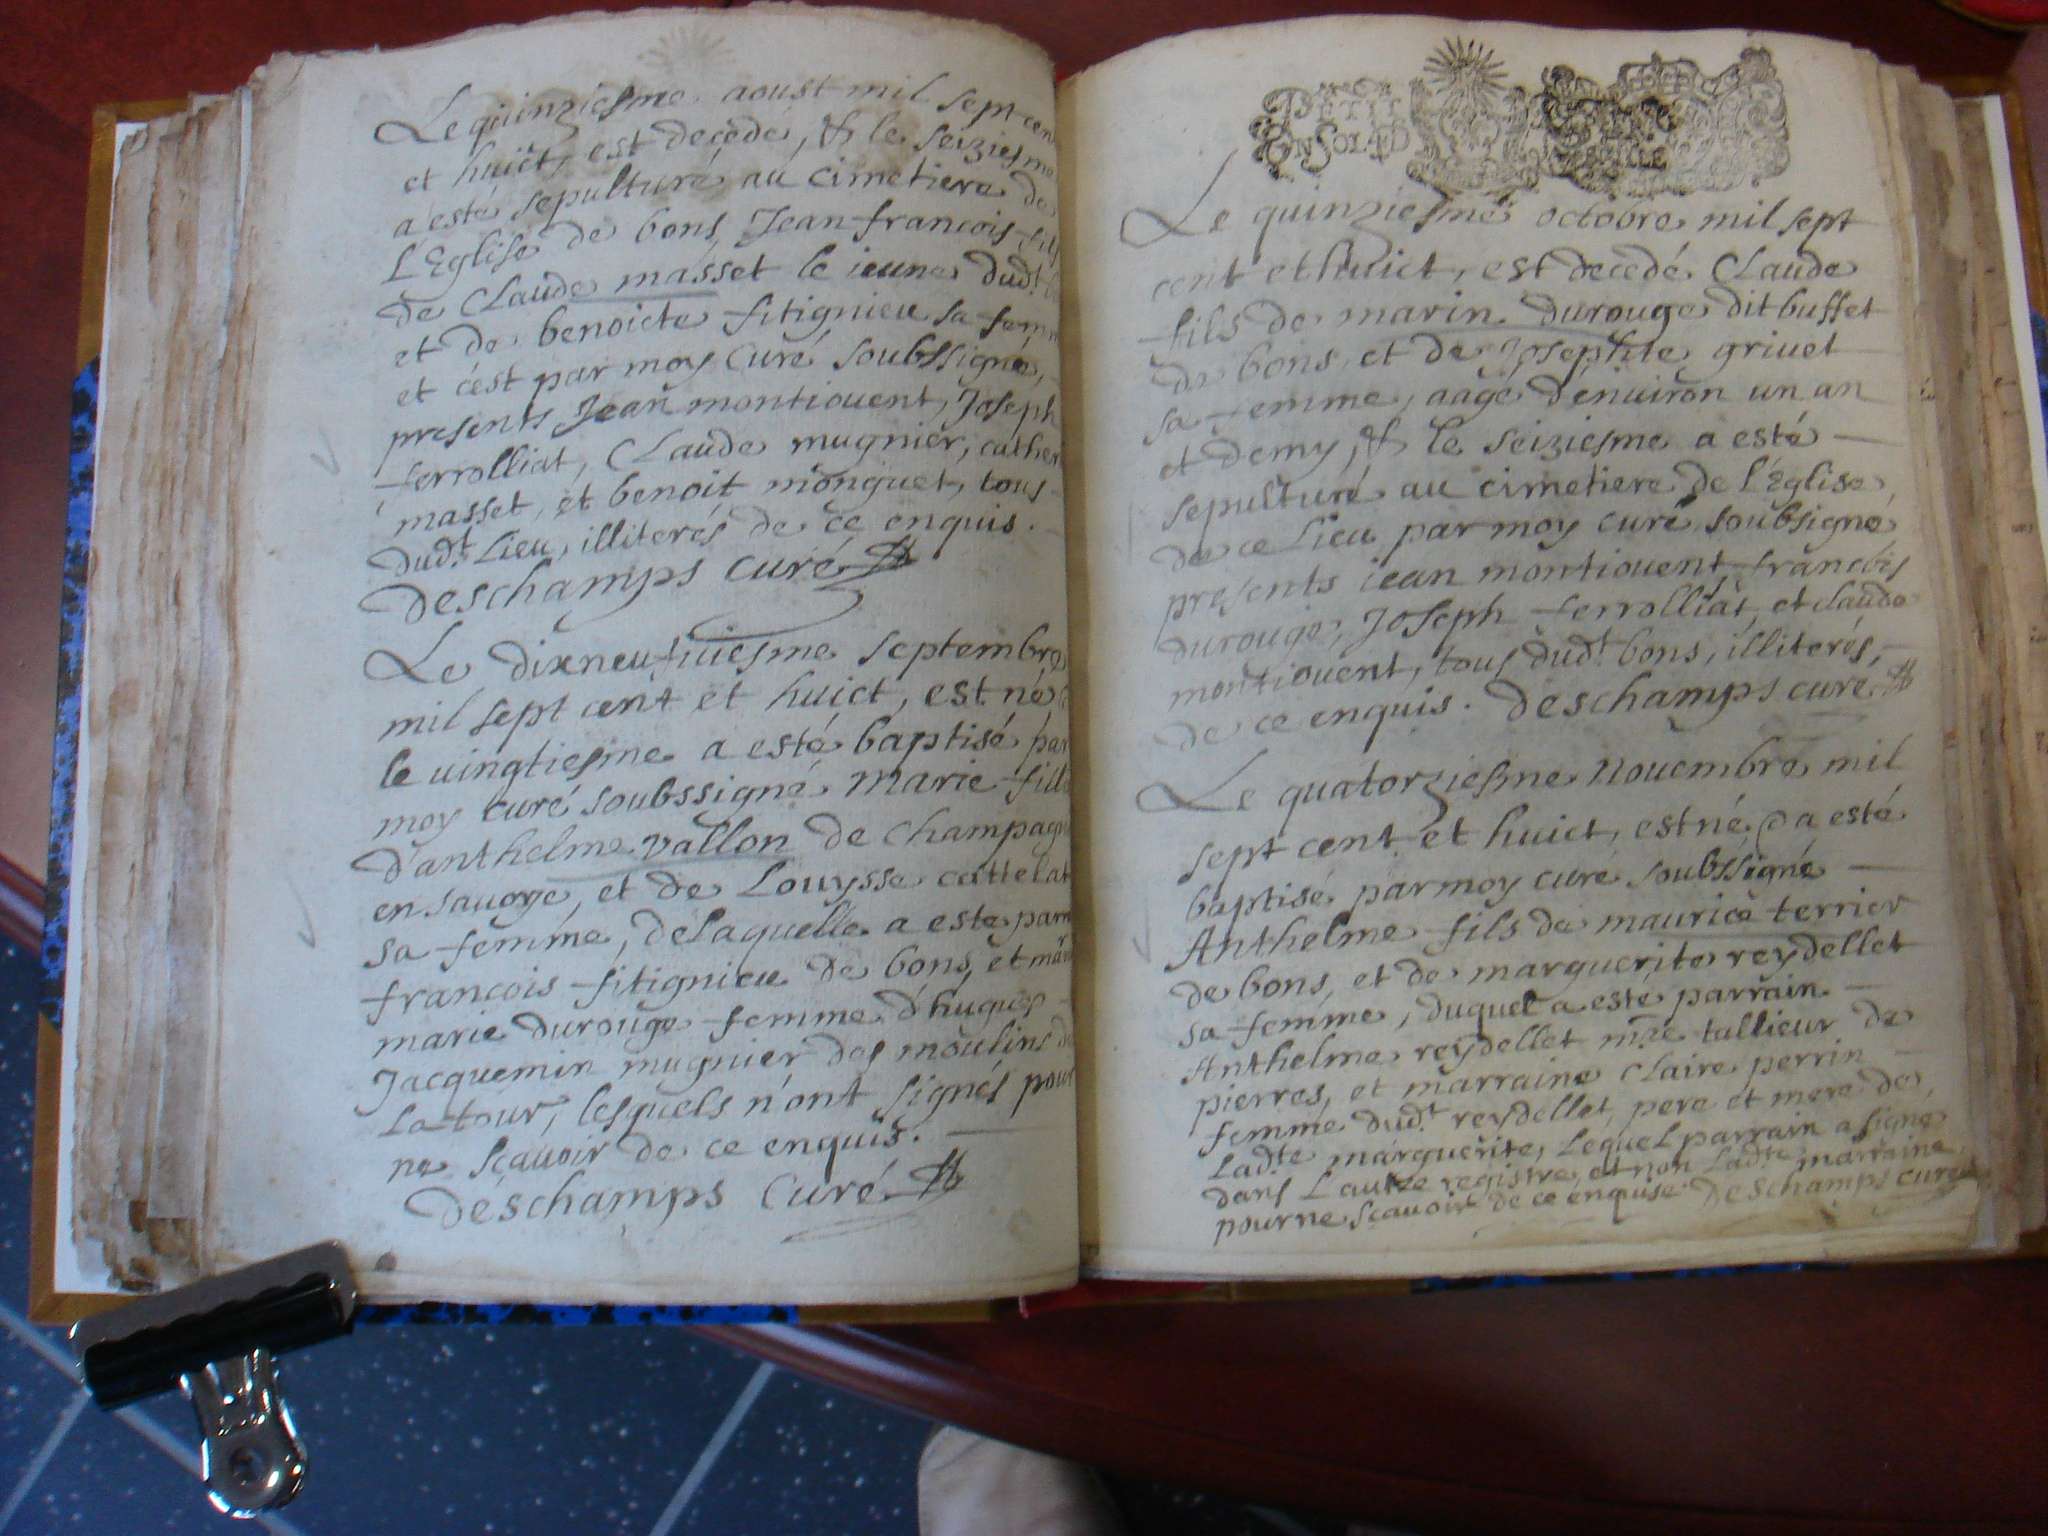 Le quinziesme aoust mil sept cen
et huict, est decedé, & le seiziesme
a esté sepulturé au cimetiere de
L'Eglise de bons, Jean françois fils
de Claude masset le ieune dud.t
et de benoicte fitignieu sa fem
et c'est par moy Curé soubssigné,
presents Jean montiouent, Joseph
ferrolliat, Claude mugnier, cathe
masset, et benoit monguet, tous
dud.t Lieu, illiterés de ce enquis.
Deschamps curé
Le dixneufuiesme septembre
mil sept cent et huict, est né
le uingtiesme a esté baptisé par
moy curé soubssigné Marie fille
d'anthelme vallon de Champagn
en sauoye, et de Louysse cattelat
sa femme, de laquelle a esté parr
françois fitignieu de bons, et mar
marie durouge femme d'hugues
Jacquemin mugnier des moulins d
La tour, lesquels n'ont signés pour
ne sçauoir de ce enquis.
Deschamps Curé
PETIT
ON SOL.ED
Le quinziesme octobre mil sept
cent et huict, est decedé Claude
fils de marin durouge dit buffet
de bons, et de Josephte griuet
sa femme, aagé d'enuiron un an
et demy, & le seiziesme a esté
sepulturé au cimetiere de l'Eglise
de ce Lieu par moy curé soubsigné
presents iean montiouent, françois
durouge, Joseph ferrolliat, et claude
montiouent, tous dud.t bons, illiterés,
de ce enquis. Deschamps curé
Le quatorziesme Nouembre mil
sept cent et huict, est né & a esté
baptisé par moy curé soubssigné
Anthelme fils de maurice terrier
de bons, et de marguerite reydellet
sa femme, duquel a esté parrain
Anthelme reydellet m.re tallieur de
pierres, et marraine Claire perrin
femme dud.t reydellet, pere et mere de
Lad.te marguerite, Lequel parrain a signé
dans L'autre registre, et non Lad.te marraine
pour ne sçauoir de ce enquise. Deschamps curé